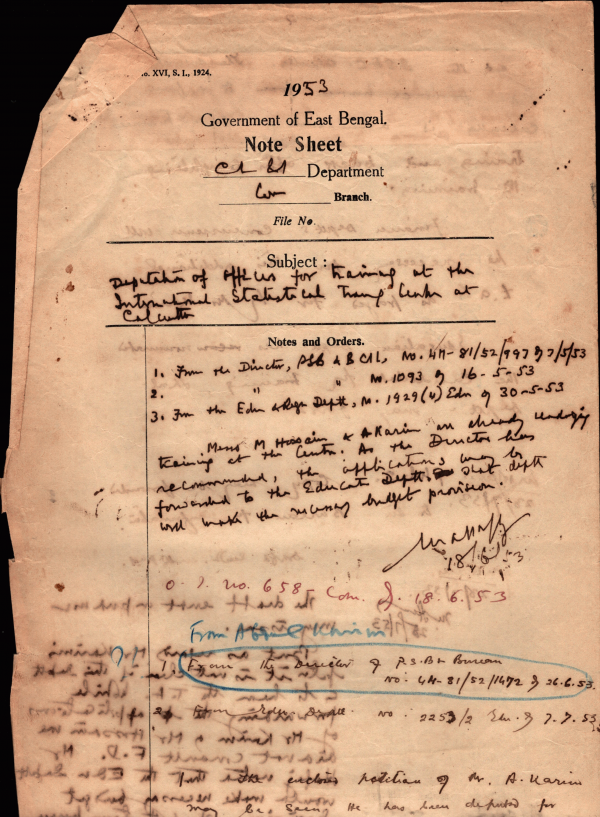 o. XVI, S. I., 1924.
1953
Government of East Bengal.
Note Sheet
Department
Com Branch.
File No.
Subject :
Deputation of officers for training at the
International Statistical Trang Centre at
Calcutta
Notes and Orders.
1. From the Director, PSB & B C&I, No. 4A-81/52/997 of 7/5/53
2. " " No. 1093 of 16-5-53
3. From the Edn & Regn Deptt, No. 1929(4) Edn of 30-5-53
Messrs M Hossain & A Karim are already undergoing
training at the Centre. As the Director has
recommended, the applications may be
forwarded to the Education Deptt. that deptt
will make the necessary budget provision.
18/6/53
O. I. No. 658- Com. d. 18.6.53
From Abdul Karim
1) From the Director of P.S.B & Bureau
No. 4A-81/52/1472 of 26.6.53.
2) From Edn. No. 2253/2 Edn. of 7.7.53
The enclosed petition of Mr. A. Karim
may be seen. He has been deputed for